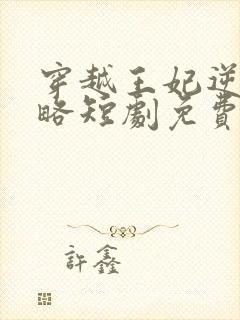 穿越王妃逆
略短劇免費
許鑫